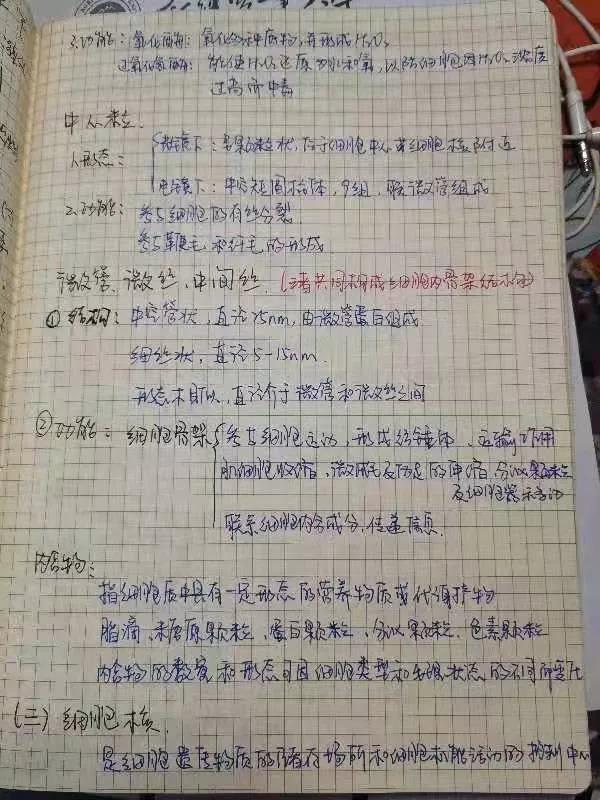 3.功能：氧化酶：氧化多种底物，再形成H₂O₂
过氧化氢酶：能使H₂O₂还原为水和氧，以防细胞因H₂O₂浓度
过高而中毒
中心粒.
1.形态：
光镜下：呈颗粒状，位于细胞中心或细胞核附近
电镜下：中空短圆柱体，9组，微管组成
2.功能：参与细胞的有丝分裂
参与鞭毛和纤毛的形成
微管、微丝、中间丝.（三者共同构成细胞内骨架结构）
①结构：中空管状，直径25nm，由微管蛋白组成
细丝状，直径5-15nm.
形态相似，直径介于微管和微丝之间
②功能：细胞骨架
参与细胞运动，形成纺锤体，运输作用
肌细胞收缩、微绒毛及伪足的伸缩、分泌颗粒
及细胞器移动
联系细胞内各成分，传递信息.
内含物：
指细胞质中具有一定形态的营养物质或代谢产物
脂滴、糖原颗粒、蛋白颗粒、分泌颗粒、色素颗粒
内含物的数量和形态可因细胞类型和生理状态的不同而变化
(三) 细胞核.
是细胞遗传物质的储存场所和细胞机能活动的控制中心